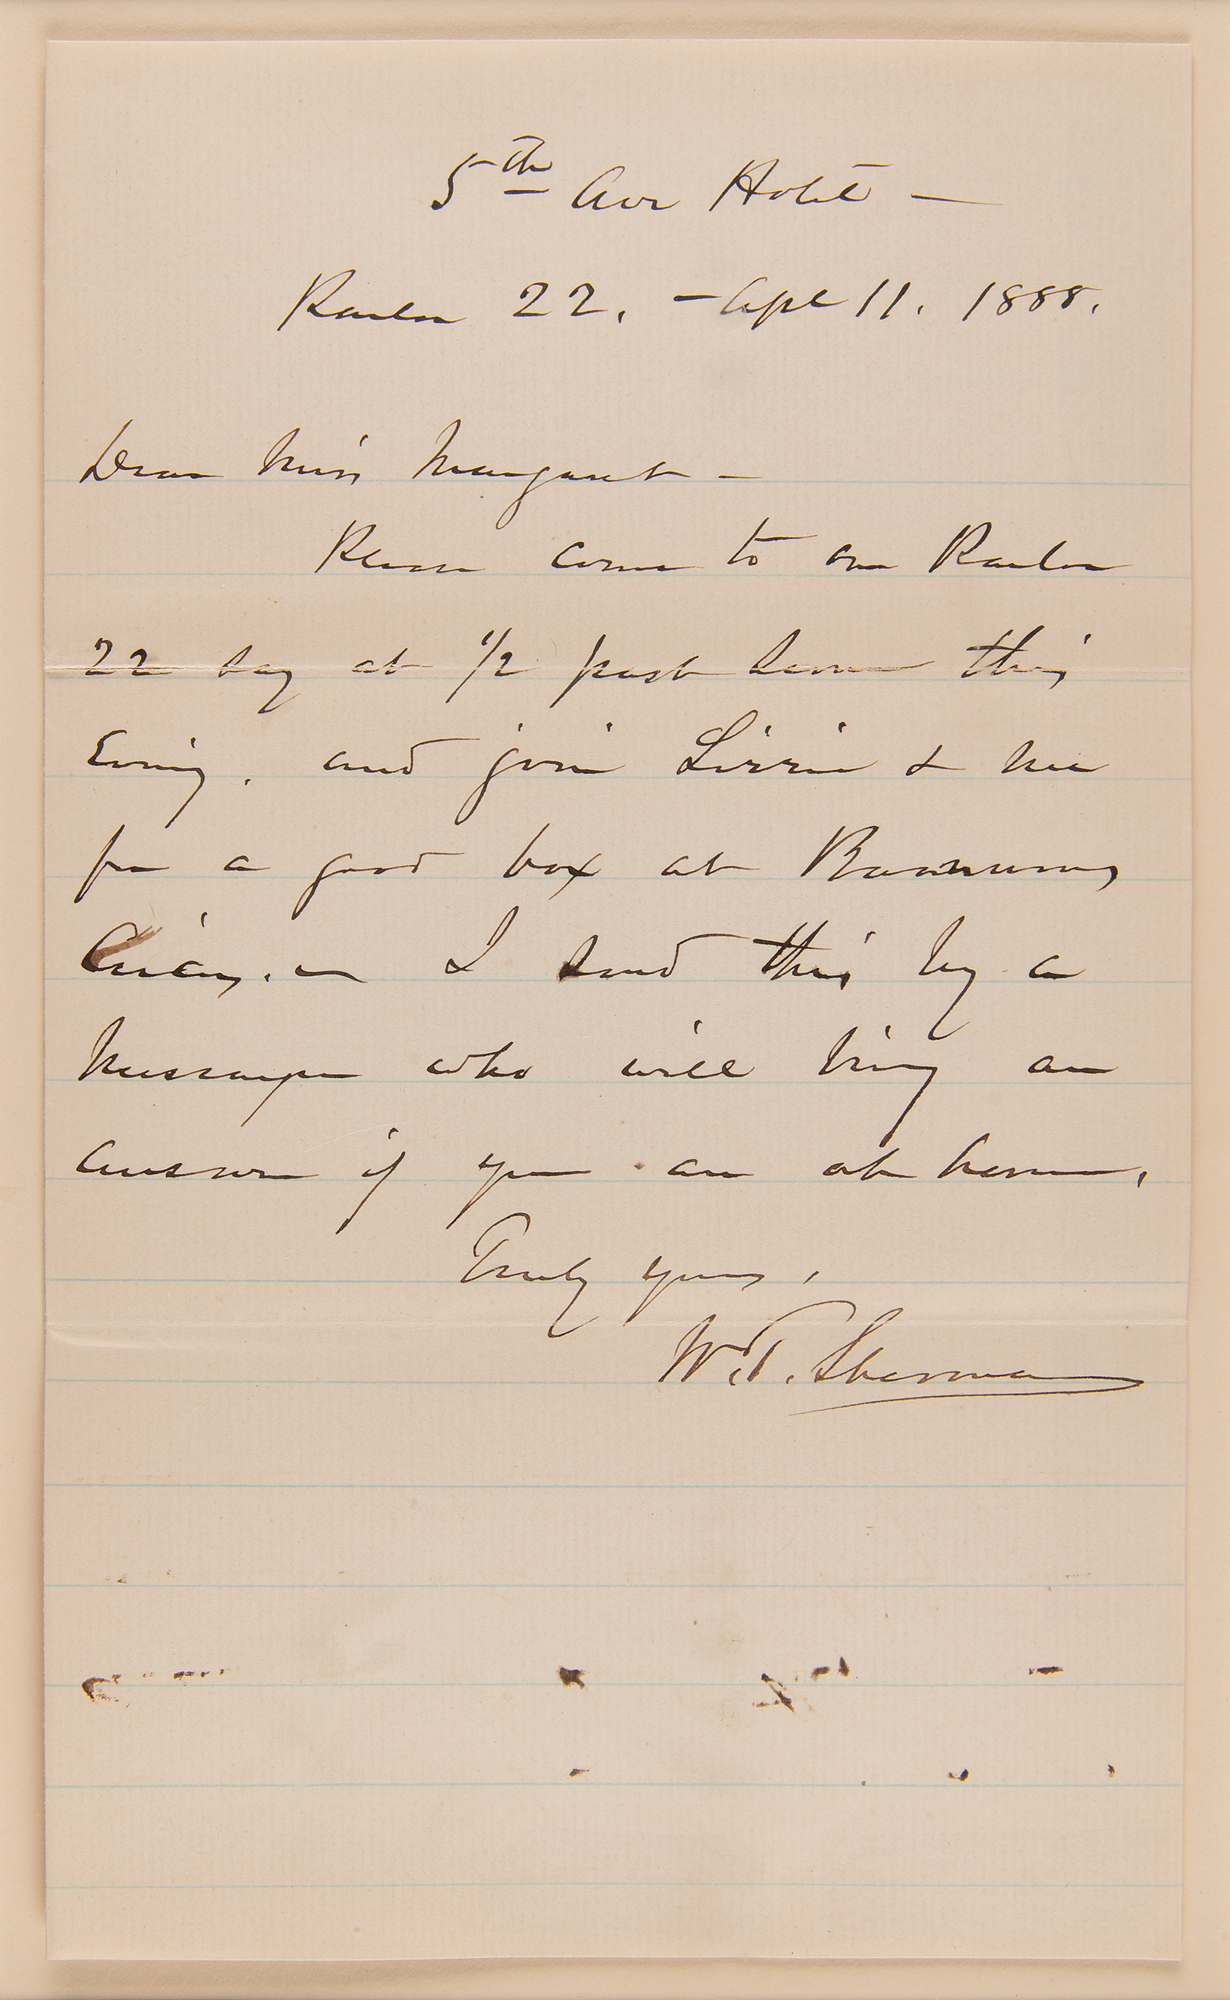 5th Ave Hotel —
Parlor 22. — Apl 11. 1888.
Dear Miss Margaret —
Please come to our Parlor
22 say at 1/2 past seven this
Evening. and join Lizzie & me
for a good box at Barnums
Circus. — I send this by a
Messenger who will bring an
answer if you are at home.
Truly yours,
W. T. Sherman